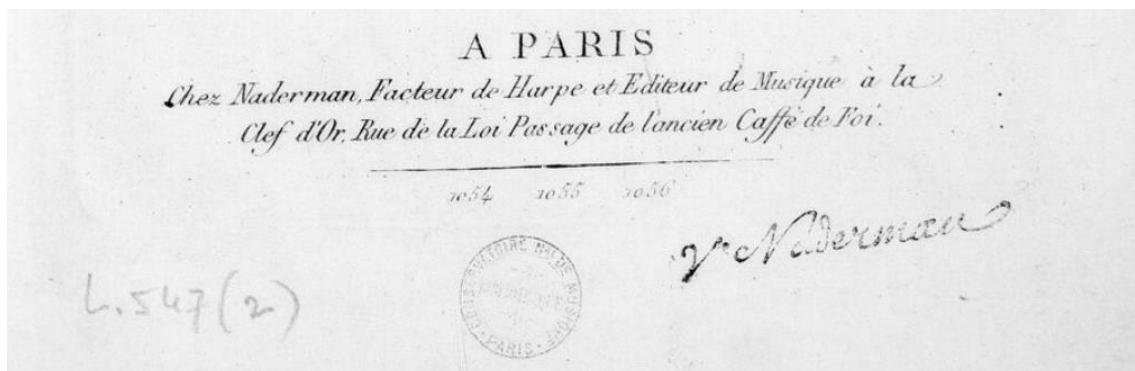 A PARIS
Chez Naderman, Facteur de Harpe et Editeur de Musique à la
Clef d'Or, Rue de la Loi Passage de l'ancien Caffé de Foi.
1054 1055 1056
Ve Naderman
L.547(2)
CONSERVATOIRE NAL DE MUSIQUE
PARIS